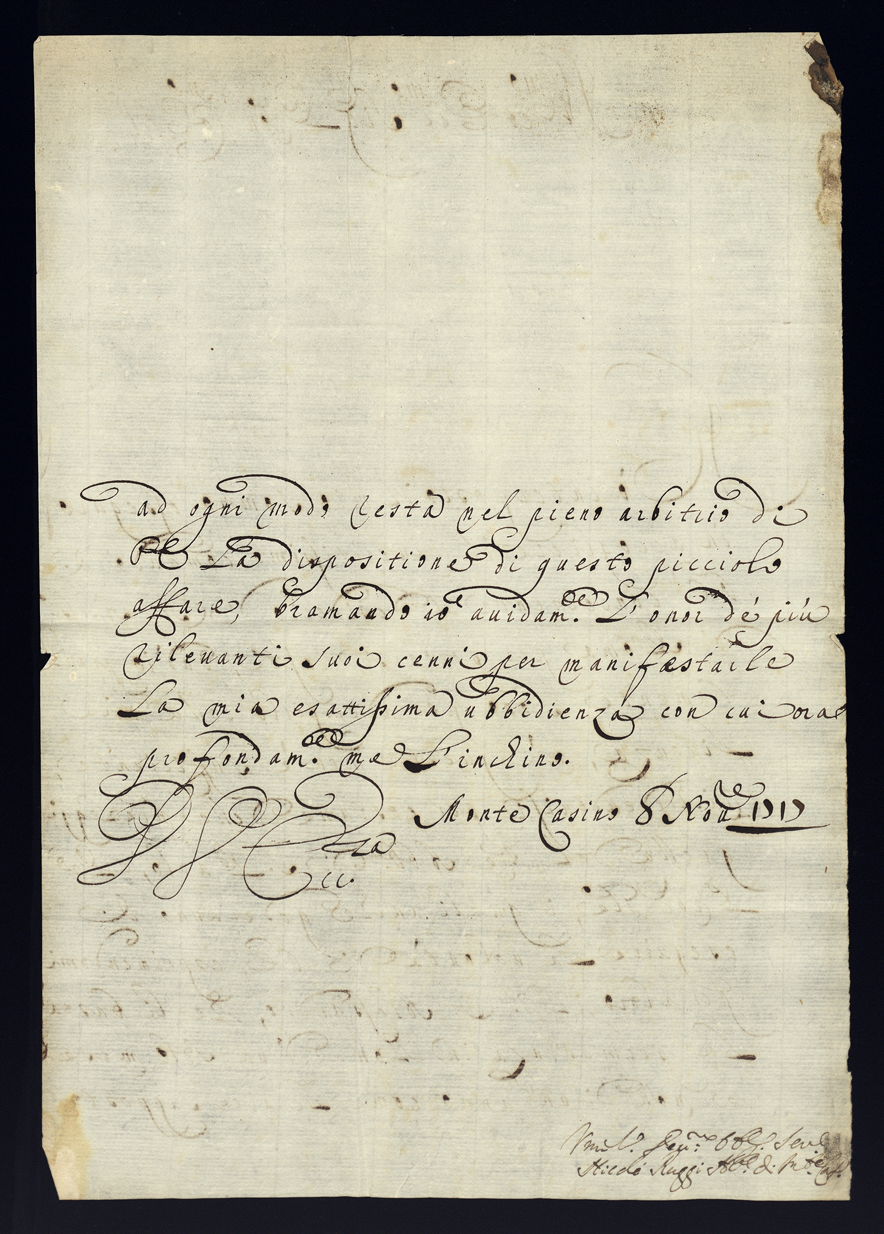 ad ogni modo resta nel pieno arbitrio di
VE La dispositione di questo picciolo
affare, bramando io avidam.te L'onor de' più
rilevanti suoi cenni per manifestarle
La mia esattissima ubbidienza con cui ora
profondam.te me L'inchino.
Monte Casino 8 Nov.e 1717
V E
Ecc.za
Umil.
Serv.
Nicolò Ruggi Ab.e di M.te Cas.